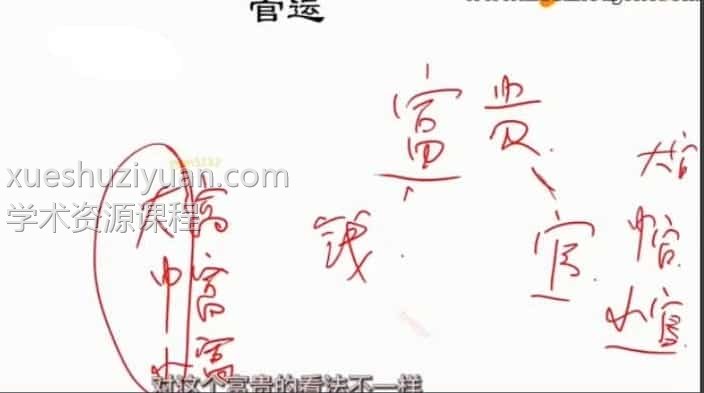 官运
富贵
大官
xueshuziyuan.com
学术资源课程
大富
钱
官
中官
中富
小官
小富
对这个富贵的看法不一样